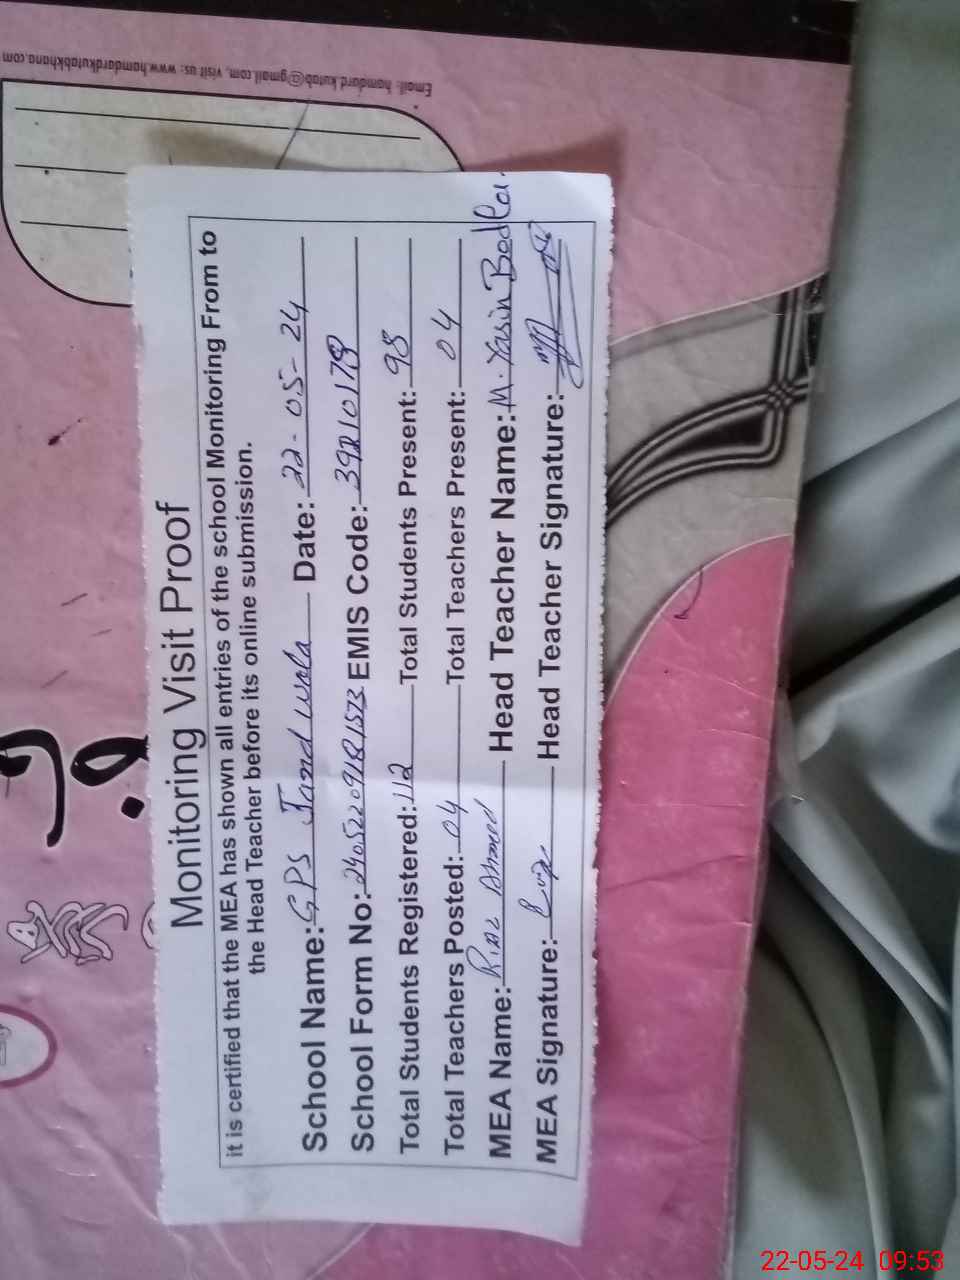 Email: hamdard.kutab@gmail.com, visit us: www.hamdardkutabkhana.com
Monitoring Visit Proof
it is certified that the MEA has shown all entries of the school Monitoring From to
the Head Teacher before its online submission.
School Name: GPS Jand wala Date: 22-05-24
School Form No: 24052209181573 EMIS Code: 39210179
Total Students Registered: 112 Total Students Present: 98
Total Teachers Posted: 04 Total Teachers Present: 04
MEA Name: Riaz Ahmed Head Teacher Name: M. Yasin Bodla.
MEA Signature: Head Teacher Signature:
22-05-24 09:53